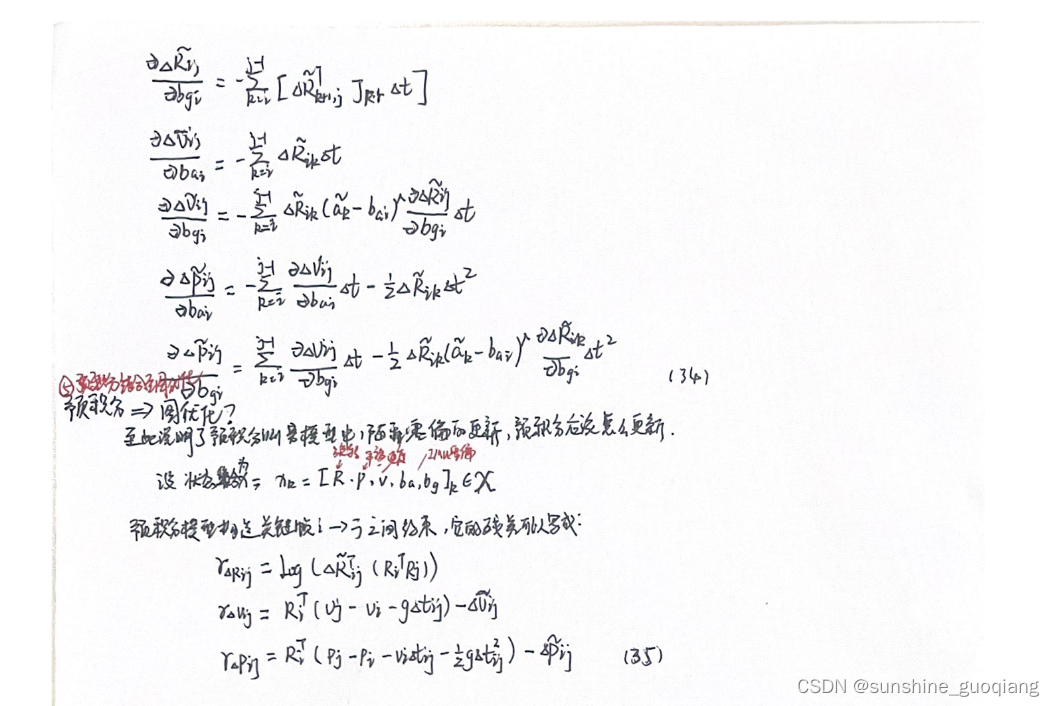 ∂ΔR̃ij/∂bgi = -∑_{k=i}^{j-1} [ΔR̃ᵀ_{k+1,j} J_{k+1} Δt]
∂Δṽij/∂bai = -∑_{k=i}^{j-1} ΔR̃ik Δt
∂Δṽij/∂bgi = -∑_{k=i}^{j-1} ΔR̃ik (ãk - bai)^ ∂ΔR̃ij/∂bgi Δt
∂Δp̃ij/∂bai = -∑_{k=i}^{j-1} ∂Δṽij/∂bai Δt - ½ ΔR̃ik Δt²
∂Δp̃ij/∂bgi = ∑_{k=i}^{j-1} ∂Δvij/∂bgi Δt - ½ ΔR̃ik (ãk - bai)^ ∂ΔR̃ik/∂bgi Δt² (34)
⑤
预积分 ⇒ 图优化?
至此说明了预积分 模型中, 随着零偏的更新, 预积分应该怎么更新.
平移 速度 IMU零偏
设 状态 为 = xk = [R, p, v, ba, bg]k ∈ X
预积分模型构造关键帧 i → j 之间约束, 它的残差可以写成:
rΔRij = Log (ΔR̃ᵀij (Riᵀ Rj))
rΔvij = Riᵀ (vj - vi - gΔtij) - Δṽij
rΔpij = Riᵀ (pj - pi - viΔtij - ½ gΔt²ij) - Δp̃ij (35)
CSDN @sunshine_guoqiang